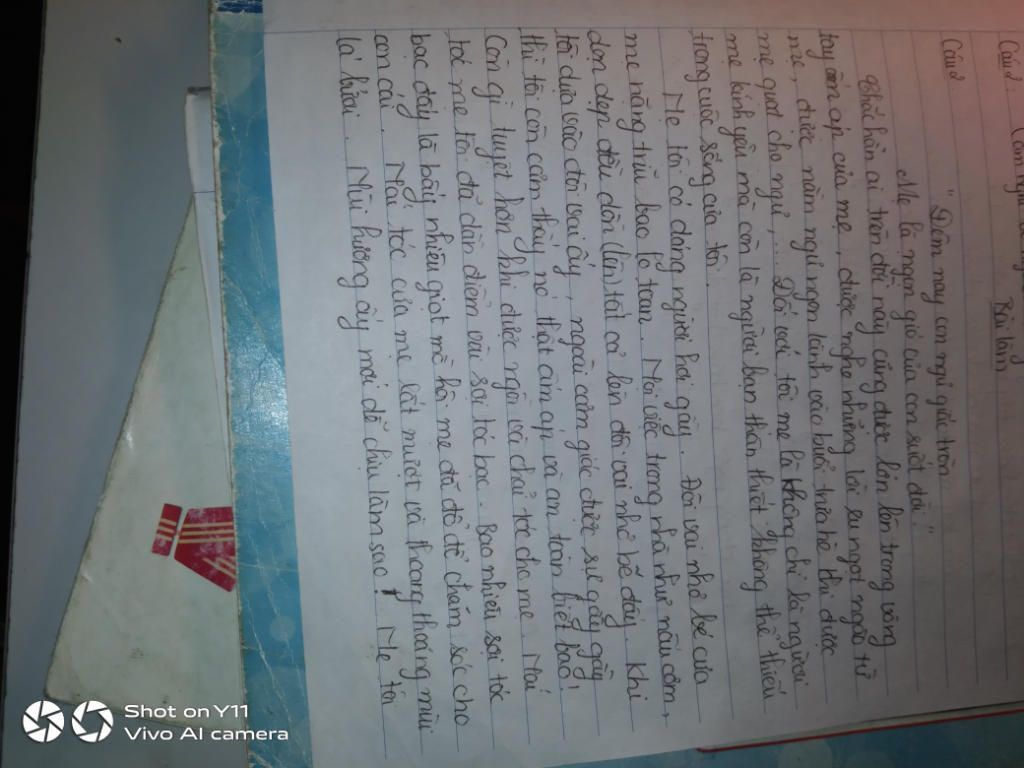 Câu 2:
Bài làm
Câu 2
"Đêm nay con ngủ giấc tròn
Mẹ là ngọn gió của con suốt đời."
Chắc hẳn ai trên đời này cũng được lớn lên trong vòng
tay ấm áp của mẹ, được nghe những lời ru ngọt ngào từ
mẹ, được nằm ngủ ngon lành vào buổi trưa hè khi được
mẹ quạt cho ngủ,... Đối với tôi mẹ là không chỉ là người
mẹ kính yêu mà còn là người bạn thân thiết không thể thiếu
trong cuộc sống của tôi.
Mẹ tôi có dáng người hơi gầy. Đôi vai nhỏ bé của
mẹ nặng trĩu bao lo toan. Mọi việc trong nhà như nấu cơm,
dọn dẹp đều dồn (lên) tất cả lên đôi vai nhỏ bé đấy. Khi
tôi dựa vào đôi vai ấy, ngoài cảm giác được sự gầy gầy
thì tôi còn cảm thấy nó thật ấm áp và an toàn biết bao!
Còn gì tuyệt hơn khi được ngồi và chải tóc cho mẹ. Mái
tóc mẹ tôi đã dần điểm vài sợi tóc bạc. Bao nhiêu sợi tóc
bạc đấy là bấy nhiêu giọt mồ hôi mẹ đã đổ để chăm sóc cho
con cái. Mái tóc của mẹ lất mượt và thoang thoảng mùi
lá bưởi. Mùi hương ấy mới dễ chịu làm sao! Mẹ tôi
Shot on Y11
Vivo AI camera